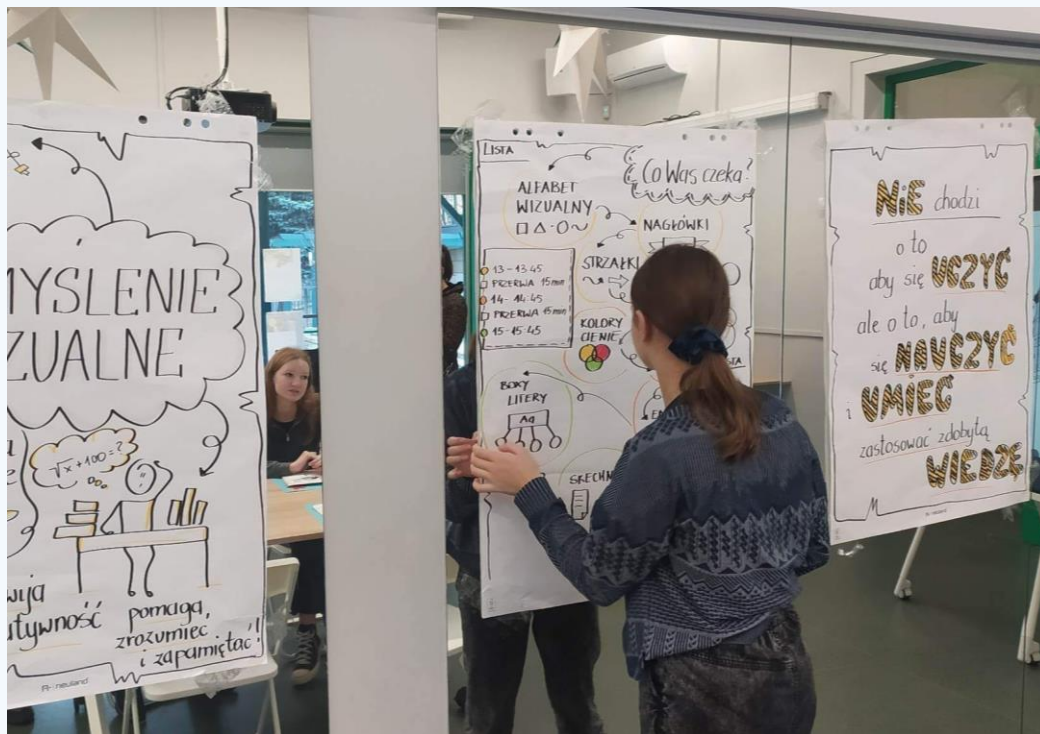 ZUALNE
√x + 100 = ?
pomaga,
zrozumieć
i zapamiętać!
neuland
LISTA
Co Was czeka?
ALFABET
WIZUALNY
NAGŁÓWKI
STRZAŁKI
13 - 13:45
PRZERWA 15 min
14 - 14:45
PRZERWA 15 min
15 - 15:45
KOLORY
CIENIE
BOXY
LITERY
Aa
NiE chodzi
o to
aby się UCZYĆ
ale o to, aby
się NAUCZYĆ
i UMIEĆ
zastosować zdobytą
WIEDZĘ
neuland